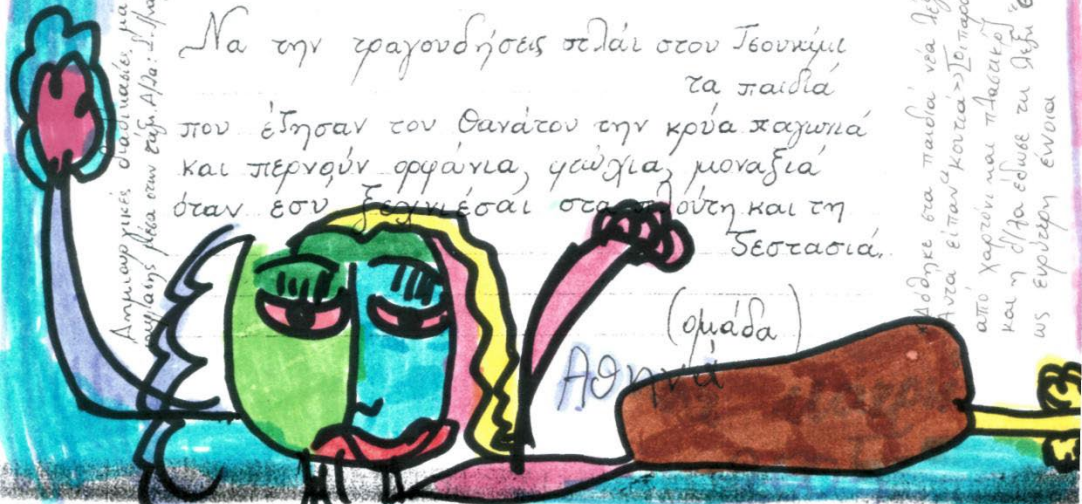 Να την τραγουδήσεις πλάι στον Τσουκίμι
τα παιδιά
που έζησαν του θανάτου την κρύα παγωνιά
και περνούν ορφάνια, φτώχια, μοναξιά
όταν εσύ ξεχνιέσαι στα πλούτη και τη
ζεστασιά.
(ομάδα)
Αθηνά
Δημιουργικές διαδικασίες μα
μέσα στην τάξη
Δόθηκε στα παιδιά νέα λέξ
Αυτά είπανε κουτιά
από χαρτόνι και πλαστικό
και η δ/λα έδωσε τη λέξη
ως ευρύτερη έννοια